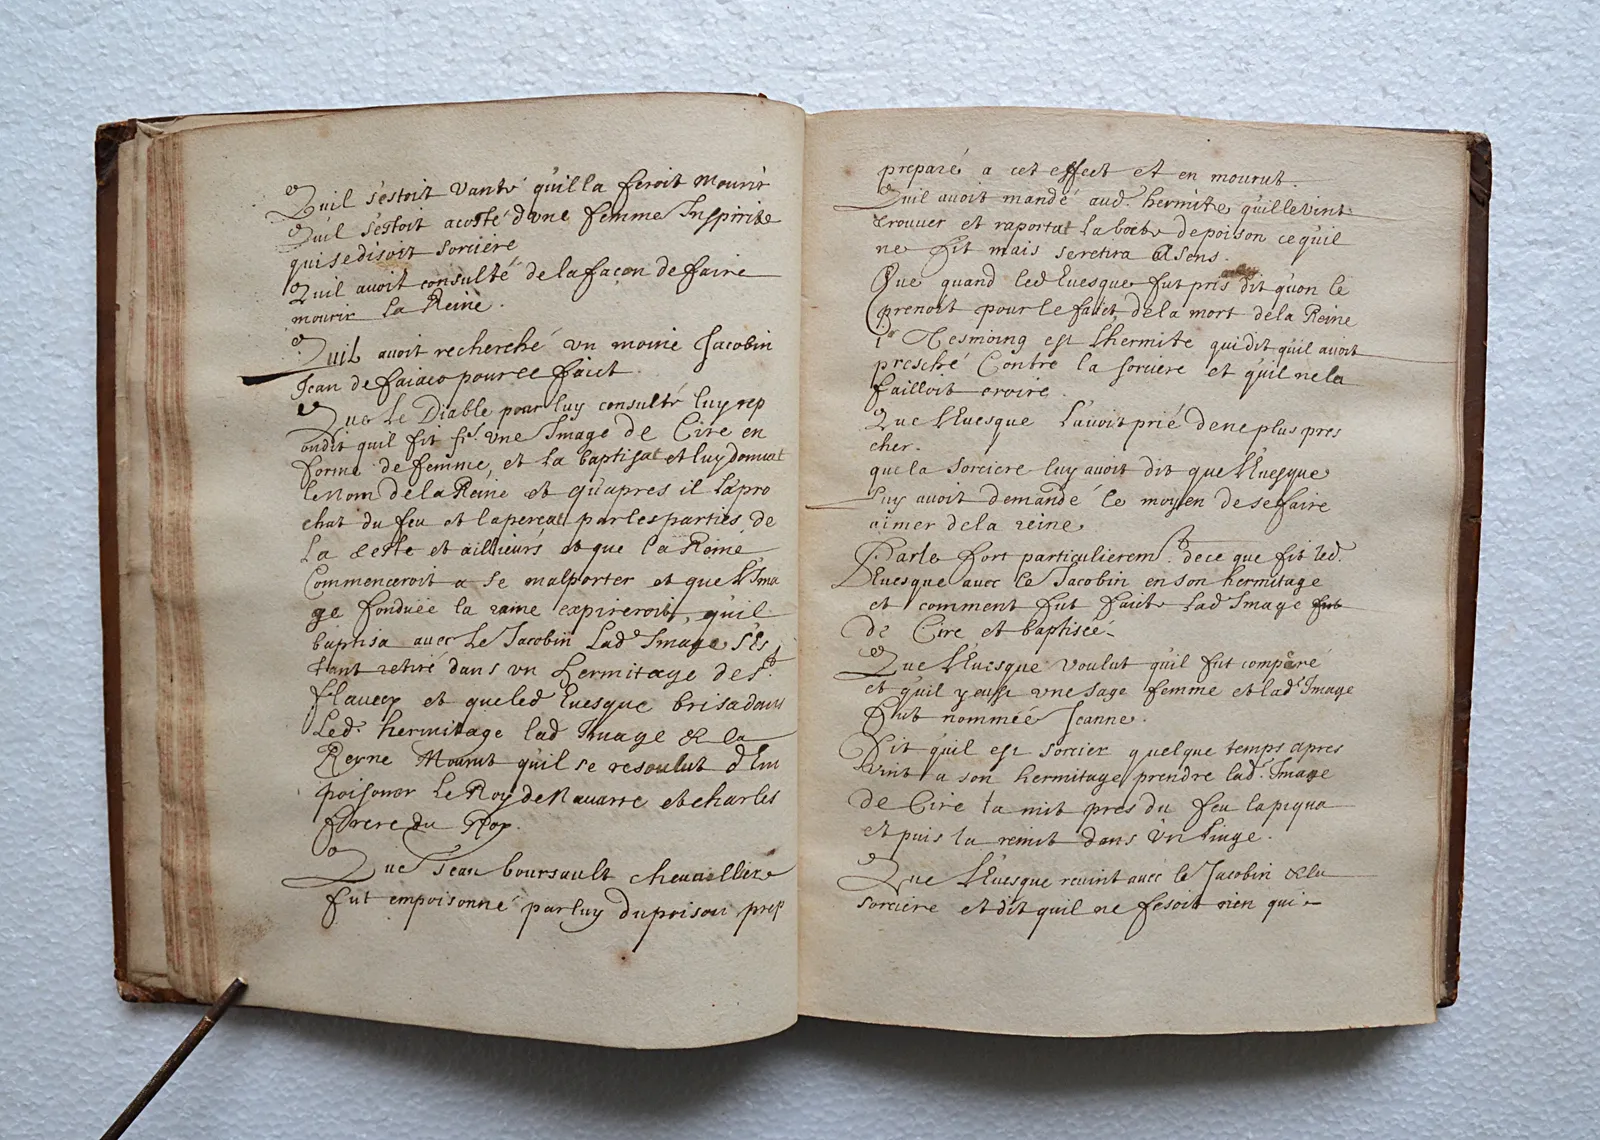 Quil s'estoit vanté quil la feroit mourir
Quil s'estoit acosté dune femme Inspirite
qui se disoit sorciere
Quil avoit consulté de la façon de faire
mourir la Reine.
Quil avoit recherché un moine Jacobin
Jean de faiaco pour ce faict
Que Le Diable pour luy consulté luy rep
ondit quil fit fre. une Image de Cire en
forme de femme, et la baptisat et luy donnat
le Nom de la Reine et qu'apres il l'apro
chat du feu et la perçat par les parties de
la teste et ailleurs et que la Reine
Commenceroit a se mal porter et que l'Ima
ge fonduée la reine expireroit, qu'il
baptisa avec Le Jacobin Lade Image s'es
tant retiré dans un hermitage de st.
flavecy et que led Evesque brisa dans
Led. hermitage lad Image & la
Reyne Mourut qu'il se resoulut d'Em
poisoner Le Roy de Navarre et charles
frere du Roy.
Que Jean boursault chevallier
fut empoisonné par luy du poison prep
preparé a cet effect et en mourut.
Quil avoit mandé aud. hermite quil le vint
trouver et raportat la boete de poison ce qu'il
ne fit mais se retira a Sens.
Que quand led Evesque fut pris dit qu'on le
prenoit pour le faict de la mort de la Reine
1er Tesmoing est L'hermite qui dit qu'il avoit
presché Contre la sorciere et qu'il ne la
failloit croire.
Que l'Evesque l'avoit prié de ne plus pres
cher.
que la sorciere luy avoit dit que l'Evesque
luy avoit demandé le moyen de se faire
aimer de la reine
Parle fort particulieremt. de ce que fit led.
Evesque avec le Jacobin en son hermitage
et comment fut faicte Lad Image fut
de Cire et baptisée.
Que l'Evesque voulut qu'il fut comperé
et qu'il y eust une sage femme et lade Image
fut nommée Jeanne.
Dit qu'il est sorcier quelque temps apres
vint a son hermitage prendre lad. Image
de Cire la mit pres du feu la piqua
et puis la remit dans un linge.
Que l'Evesque revint avec le Jacobin & la
sorciere et dit qu'il ne fesoit rien qui